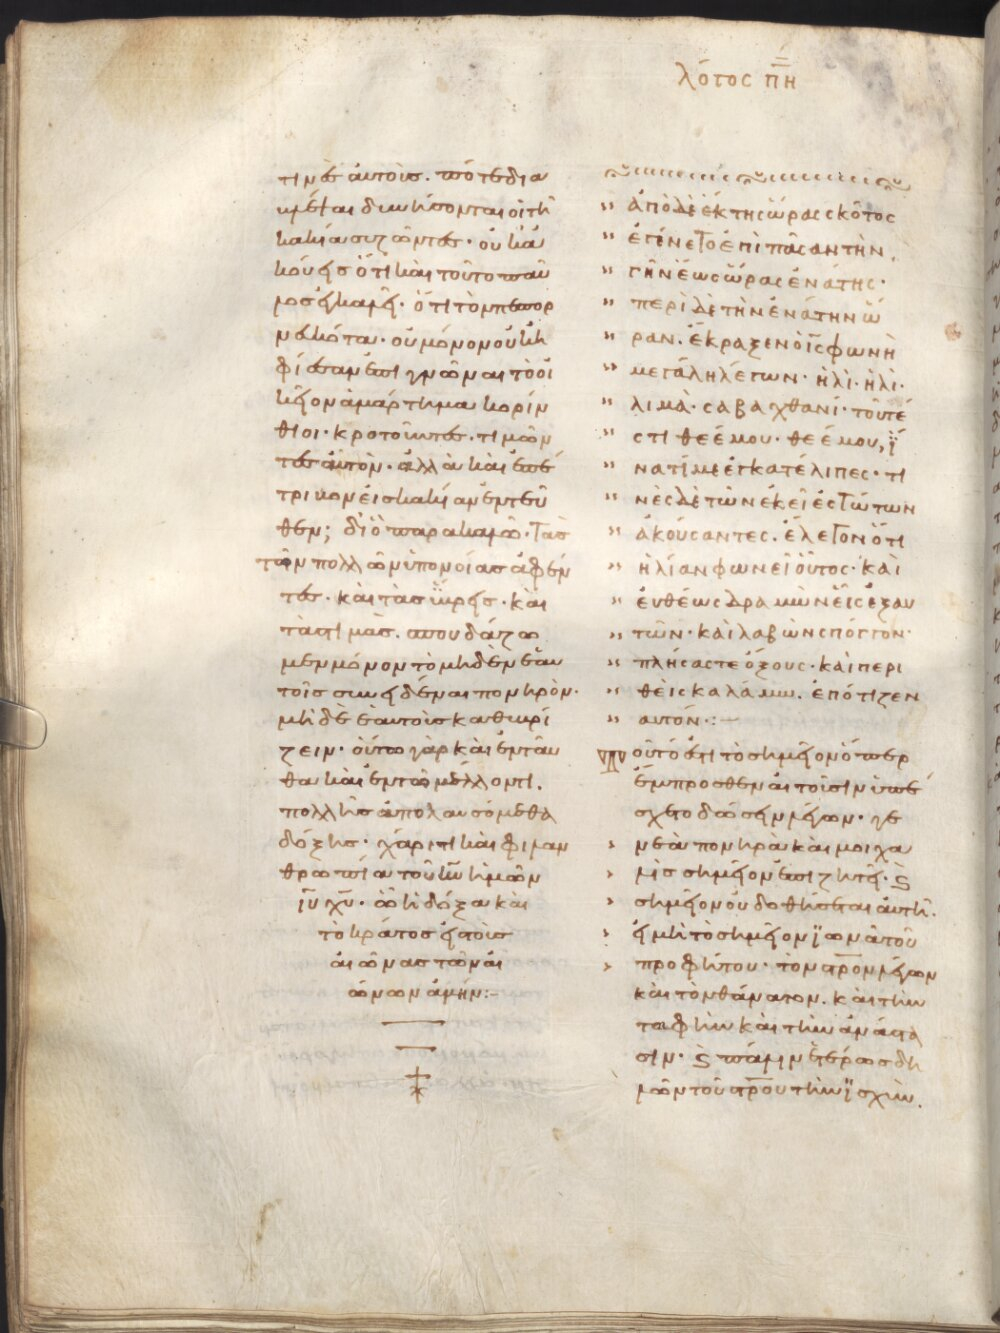 λόγος πη
τινὲς αὐτοῖς. πότε δια
κρέεται δικήσονται οἱ τῆ
κακία συζῶντες· οὐκ ἀ
κούεις ὅτι καὶ τοῦτο παῦ
λος ἐκάλει· ὅτι τὸν πεπορ
νευκότα· οὐ μόνον οὐκ
ἐπὶ γνῶναι τὸ οἰ
κεῖον ἁμάρτημα κορίν
θιοι· κροτοῦντες· τιμῶν
τες αὐτὸν· ἀλλὰ καὶ ἐπέ
τριβον εἰς κακίαν ἐντεῦ
θεν; διὸ παρακαλῶ· τὰς
τῶν πολλῶν ὑπονοίας ἀφέν
τες· καὶ τὰς ὕβρεις· καὶ
τὰς τιμὰς. σπουδάζω
μεν μόνον τὸ μηδὲν ἑαυ
τοῖς συνειδέναι πονηρὸν·
μηδὲ ἑαυτοὺς καθυβρί
ζειν· οὕτω γὰρ καὶ ἐνταῦ
θα καὶ ἐν τῶ μέλλοντι.
πολλῆς ἀπολαυσόμεθα
δόξης· χάριτι καὶ φιλαν
θρωπία τοῦ κυ ἡμῶν
ιυ χυ· ὧ ἡ δόξα καὶ
τὸ κράτος εἰς τοὺς
αἰῶνας τῶν αἰ
ώνων ἀμήν:–
ἀπὸ δὲ ἕκτης ὥρας σκότος
ἐγίνετο ἐπὶ πᾶσαν τὴν
γῆν ἕως ὥρας ἐνάτης·
περὶ δὲ τὴν ἐνάτην ὥ
ραν. ἔκραξεν ὁ ις φωνῆ
μεγάλη λέγων· ἠλὶ· ἠλὶ·
λιμὰ· σαβαχθανί· τοῦτέ
στι θεέ μου· θεέ μου, ἵ
νατί με ἐγκατέλιπες· τι
νὲς δὲ τῶν ἐκεῖ ἑστώτων
ἀκούσαντες. ἔλεγον ὅτι
ἠλίαν φωνεῖ οὗτος· καὶ
εὐθέως δραμὼν εἷς ἐξ αυ
τῶν· καὶ λαβὼν σπόγγον·
πλήσας τε ὄξους· καὶ περι
θεὶς καλάμω. ἐπότιζεν
αυτόν·:–
οὗτό ἐστι τὸ σημεῖον ὅπερ
ἔμπροσθεν αἰτοῦσιν ὑπέ
σχετο δώσειν λέγων· γε
νεὰ πονηρὰ καὶ μοιχα
λὶς σημεῖον ἐπιζητεῖ· ϗ
σημεῖον οὐ δοθήσεται αὐτῆ·
εἰ μὴ τὸ σημεῖον ϊωνᾶ τοῦ
προφήτου· τὸν στρον λέγων
καὶ τὸν θάνατον. καὶ τὴν
ταφὴν καὶ τὴν ἀνάστα
σιν· ϗ πάλιν ἑτέρως δη
λῶν τοῦ στρου τὴν ϊσχὺν.